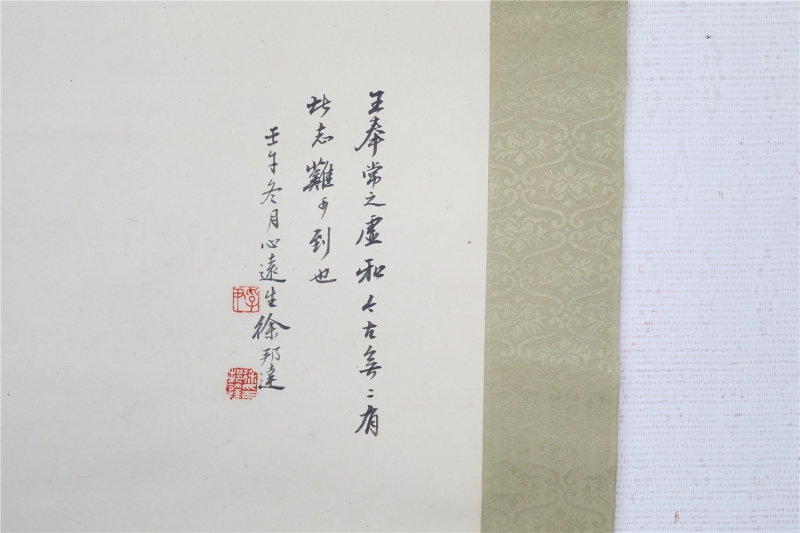 王奉常之虛和今古無二有
此志難可到也
壬午冬月心遠生徐邦達
孚尹